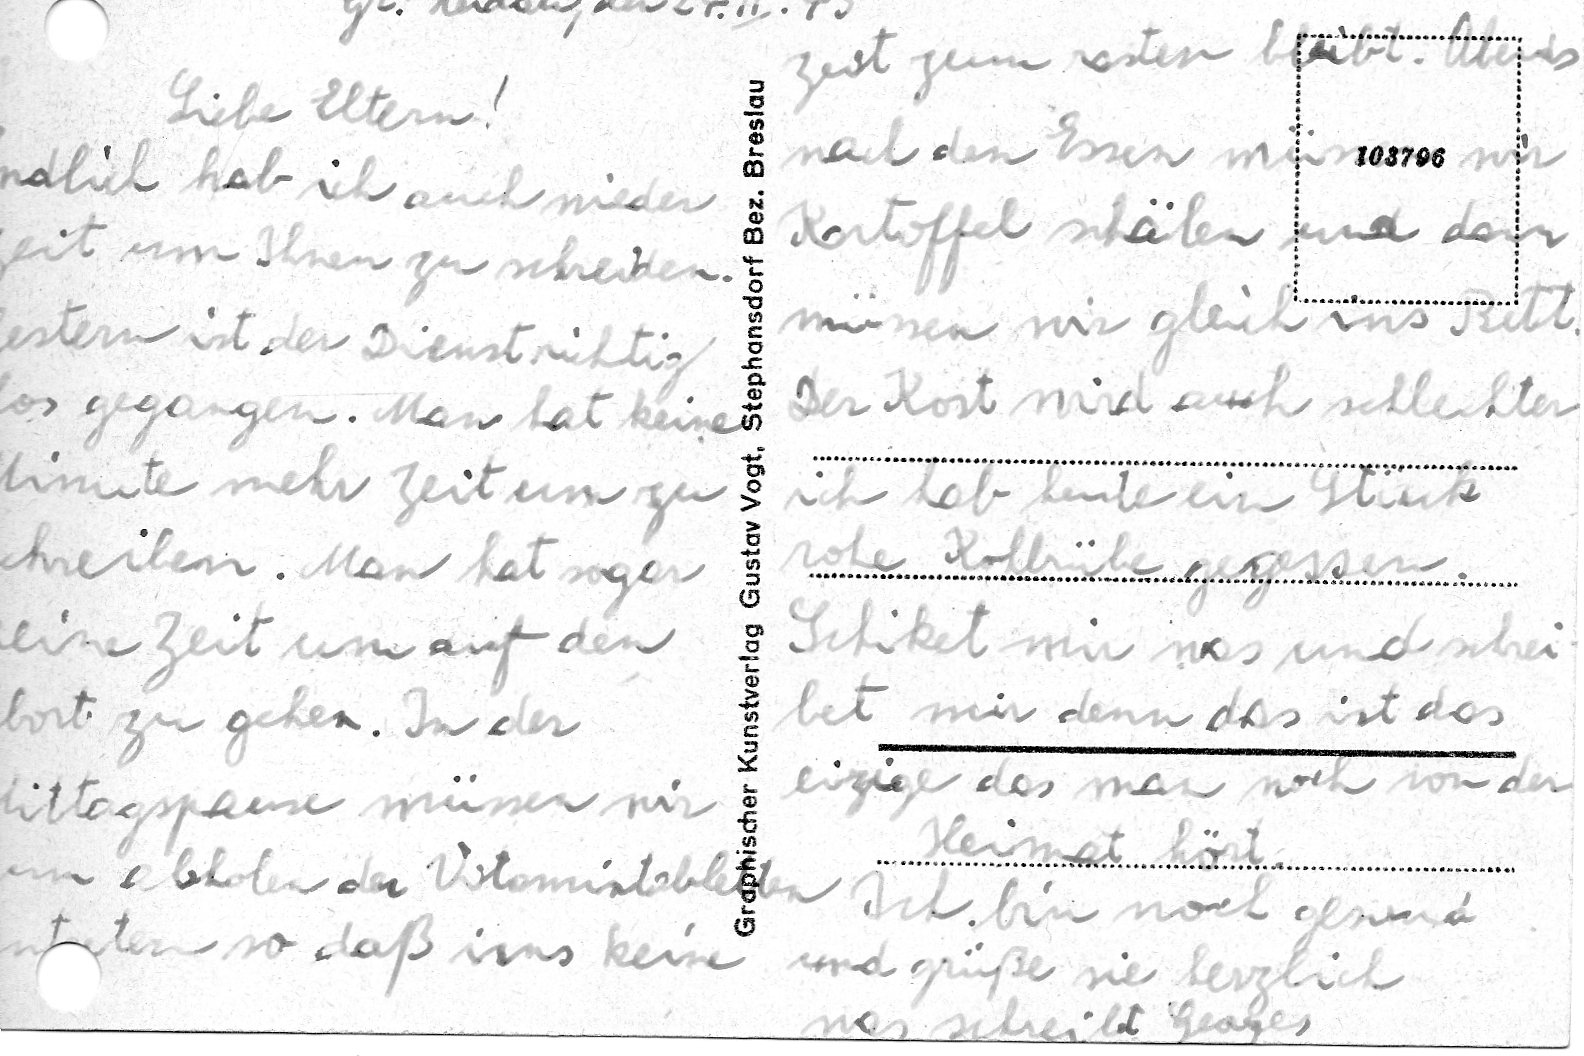 den 27.II.43
Liebe Eltern!
ndlich hab ich auch wieder
zeit um Ihnen zu schreiben.
estern ist der Dienst richtig
los gegangen. Man hat keine
Minute mehr Zeit um zu
chreiben. Man hat sogar
eine Zeit um auf den
bort zu gehen. In der
Mittagspause müssen wir
um abholen der Vitamintabletten
ntreten so daß uns keine
zeit zum rasten bleibt. Abends
nach den Essen müssen wir
Kartoffel schälen und dann
müssen wir gleich ins Bett.
Der Kost wird auch schlechter
ich hab heute ein Stück
rohe Kohlrübe gegessen.
Schiket mir was und schrei
bet mir denn das ist das
einzige das man noch von der
Heimat hört.
Ich bin noch gesund
und grüße sie herzlich
was schreibt Georges
Graphischer Kunstverlag Gustav Vogt, Stephansdorf Bez. Breslau
103796